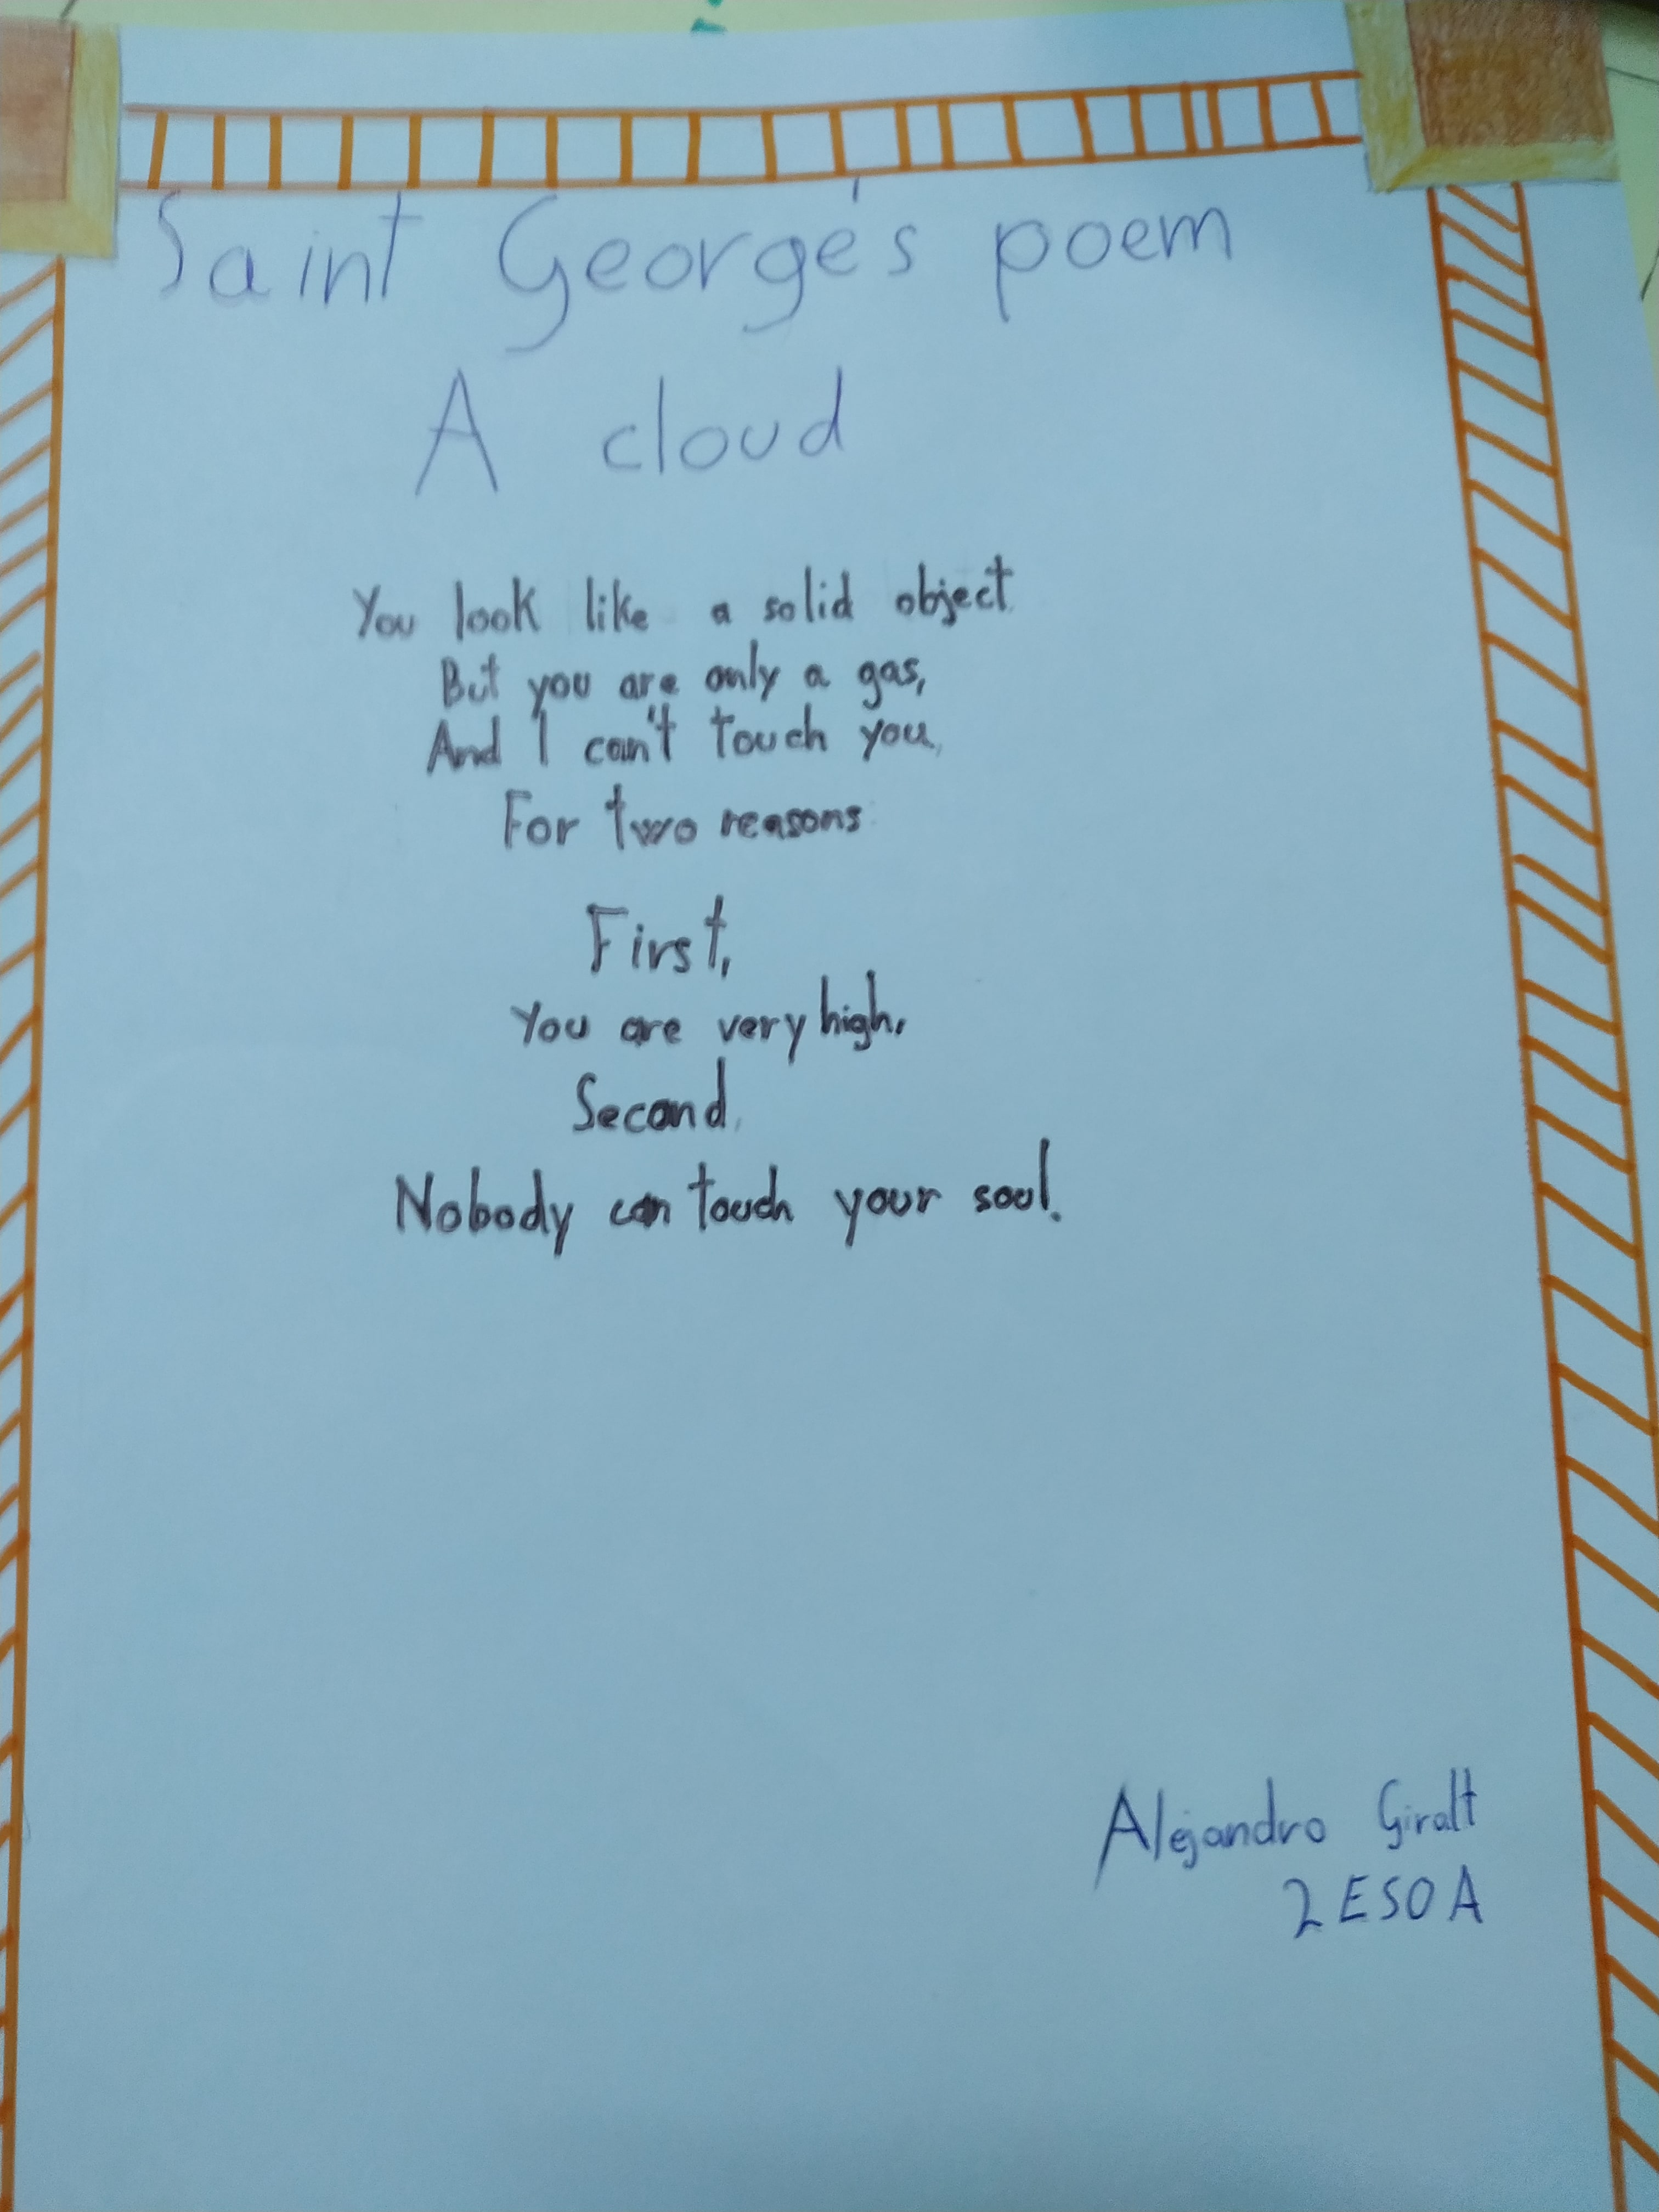 Saint George's poem
A cloud
You look like a solid object
But you are only a gas,
And I can't touch you,
For two reasons:
First,
You are very high,
Second,
Nobody can touch your soul.
Alejandro Giralt
2 ESO A